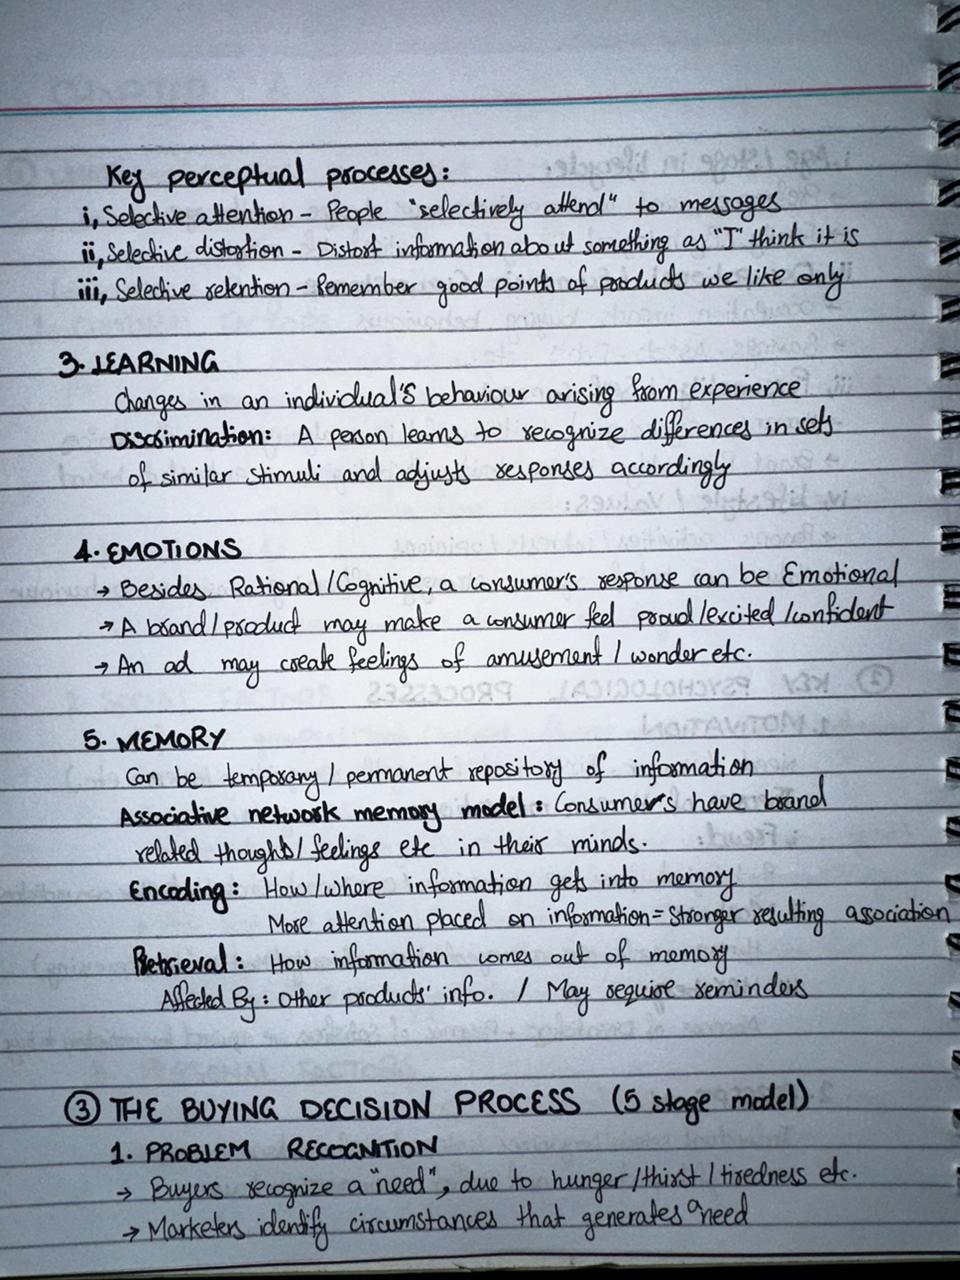 Key perceptual processes:
i, Selective attention - People "selectively attend" to messages
ii, Selective distortion - Distort information about something as "I" think it is
iii, Selective retention - Remember good points of products we like only
3. LEARNING
Changes in an individual's behaviour arising from experience
Discrimination: A person learns to recognize differences in sets
of similar stimuli and adjusts responses accordingly
4. EMOTIONS
→ Besides Rational/Cognitive, a consumer's response can be Emotional
→ A brand/product may make a consumer feel proud/excited/confident
→ An ad may create feelings of amusement/wonder etc.
5. MEMORY
Can be temporary/permanent repository of information
Associative network memory model: Consumer's have brand
related thoughts/feelings etc in their minds.
Encoding: How/where information gets into memory
More attention placed on information = Stronger resulting association
Retrieval: How information comes out of memory
Affected By: Other products' info. / May require reminders
③ THE BUYING DECISION PROCESS (5 stage model)
1. PROBLEM RECOGNITION
→ Buyers recognize a "need", due to hunger/thirst/tiredness etc.
→ Marketers identify circumstances that generates a need